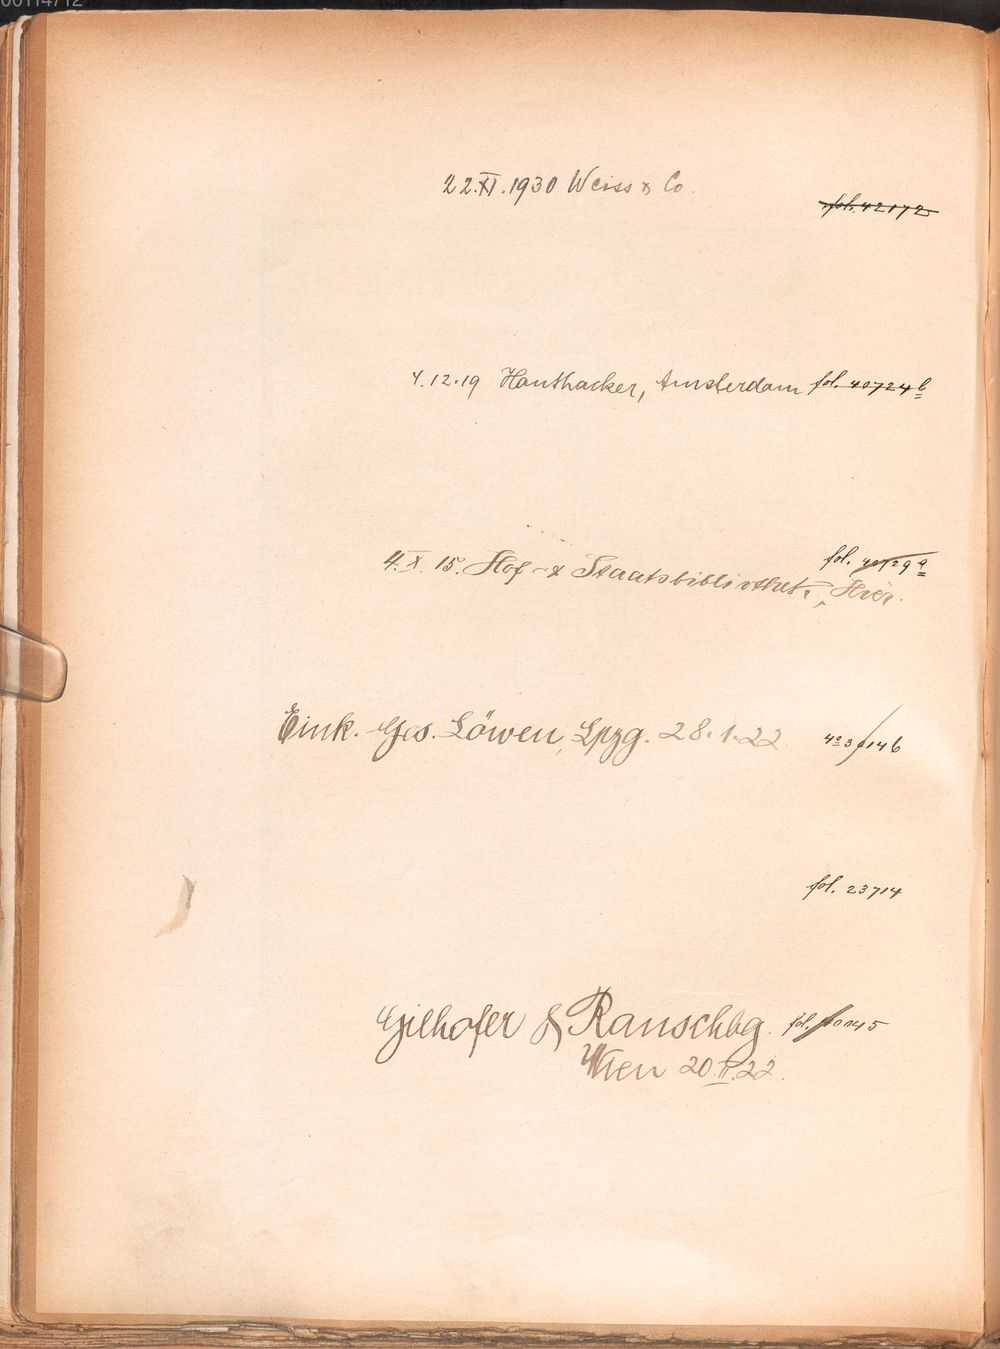 00114712
22.XI.1930 Weiss & Co.
fol. 42172
4.12.19 Hanthacker, Amsterdam fol. 40724 b
fol. 40729 a
4. X. 15. Hof- & Staatsbibliothek, Hier.
Eink. Ges. Löwen, Lpzg. 28.1.22 4º 3 146
fol. 23714
Gilhofer & Ranschbg. fol. 40045
Wien 20.II.22.